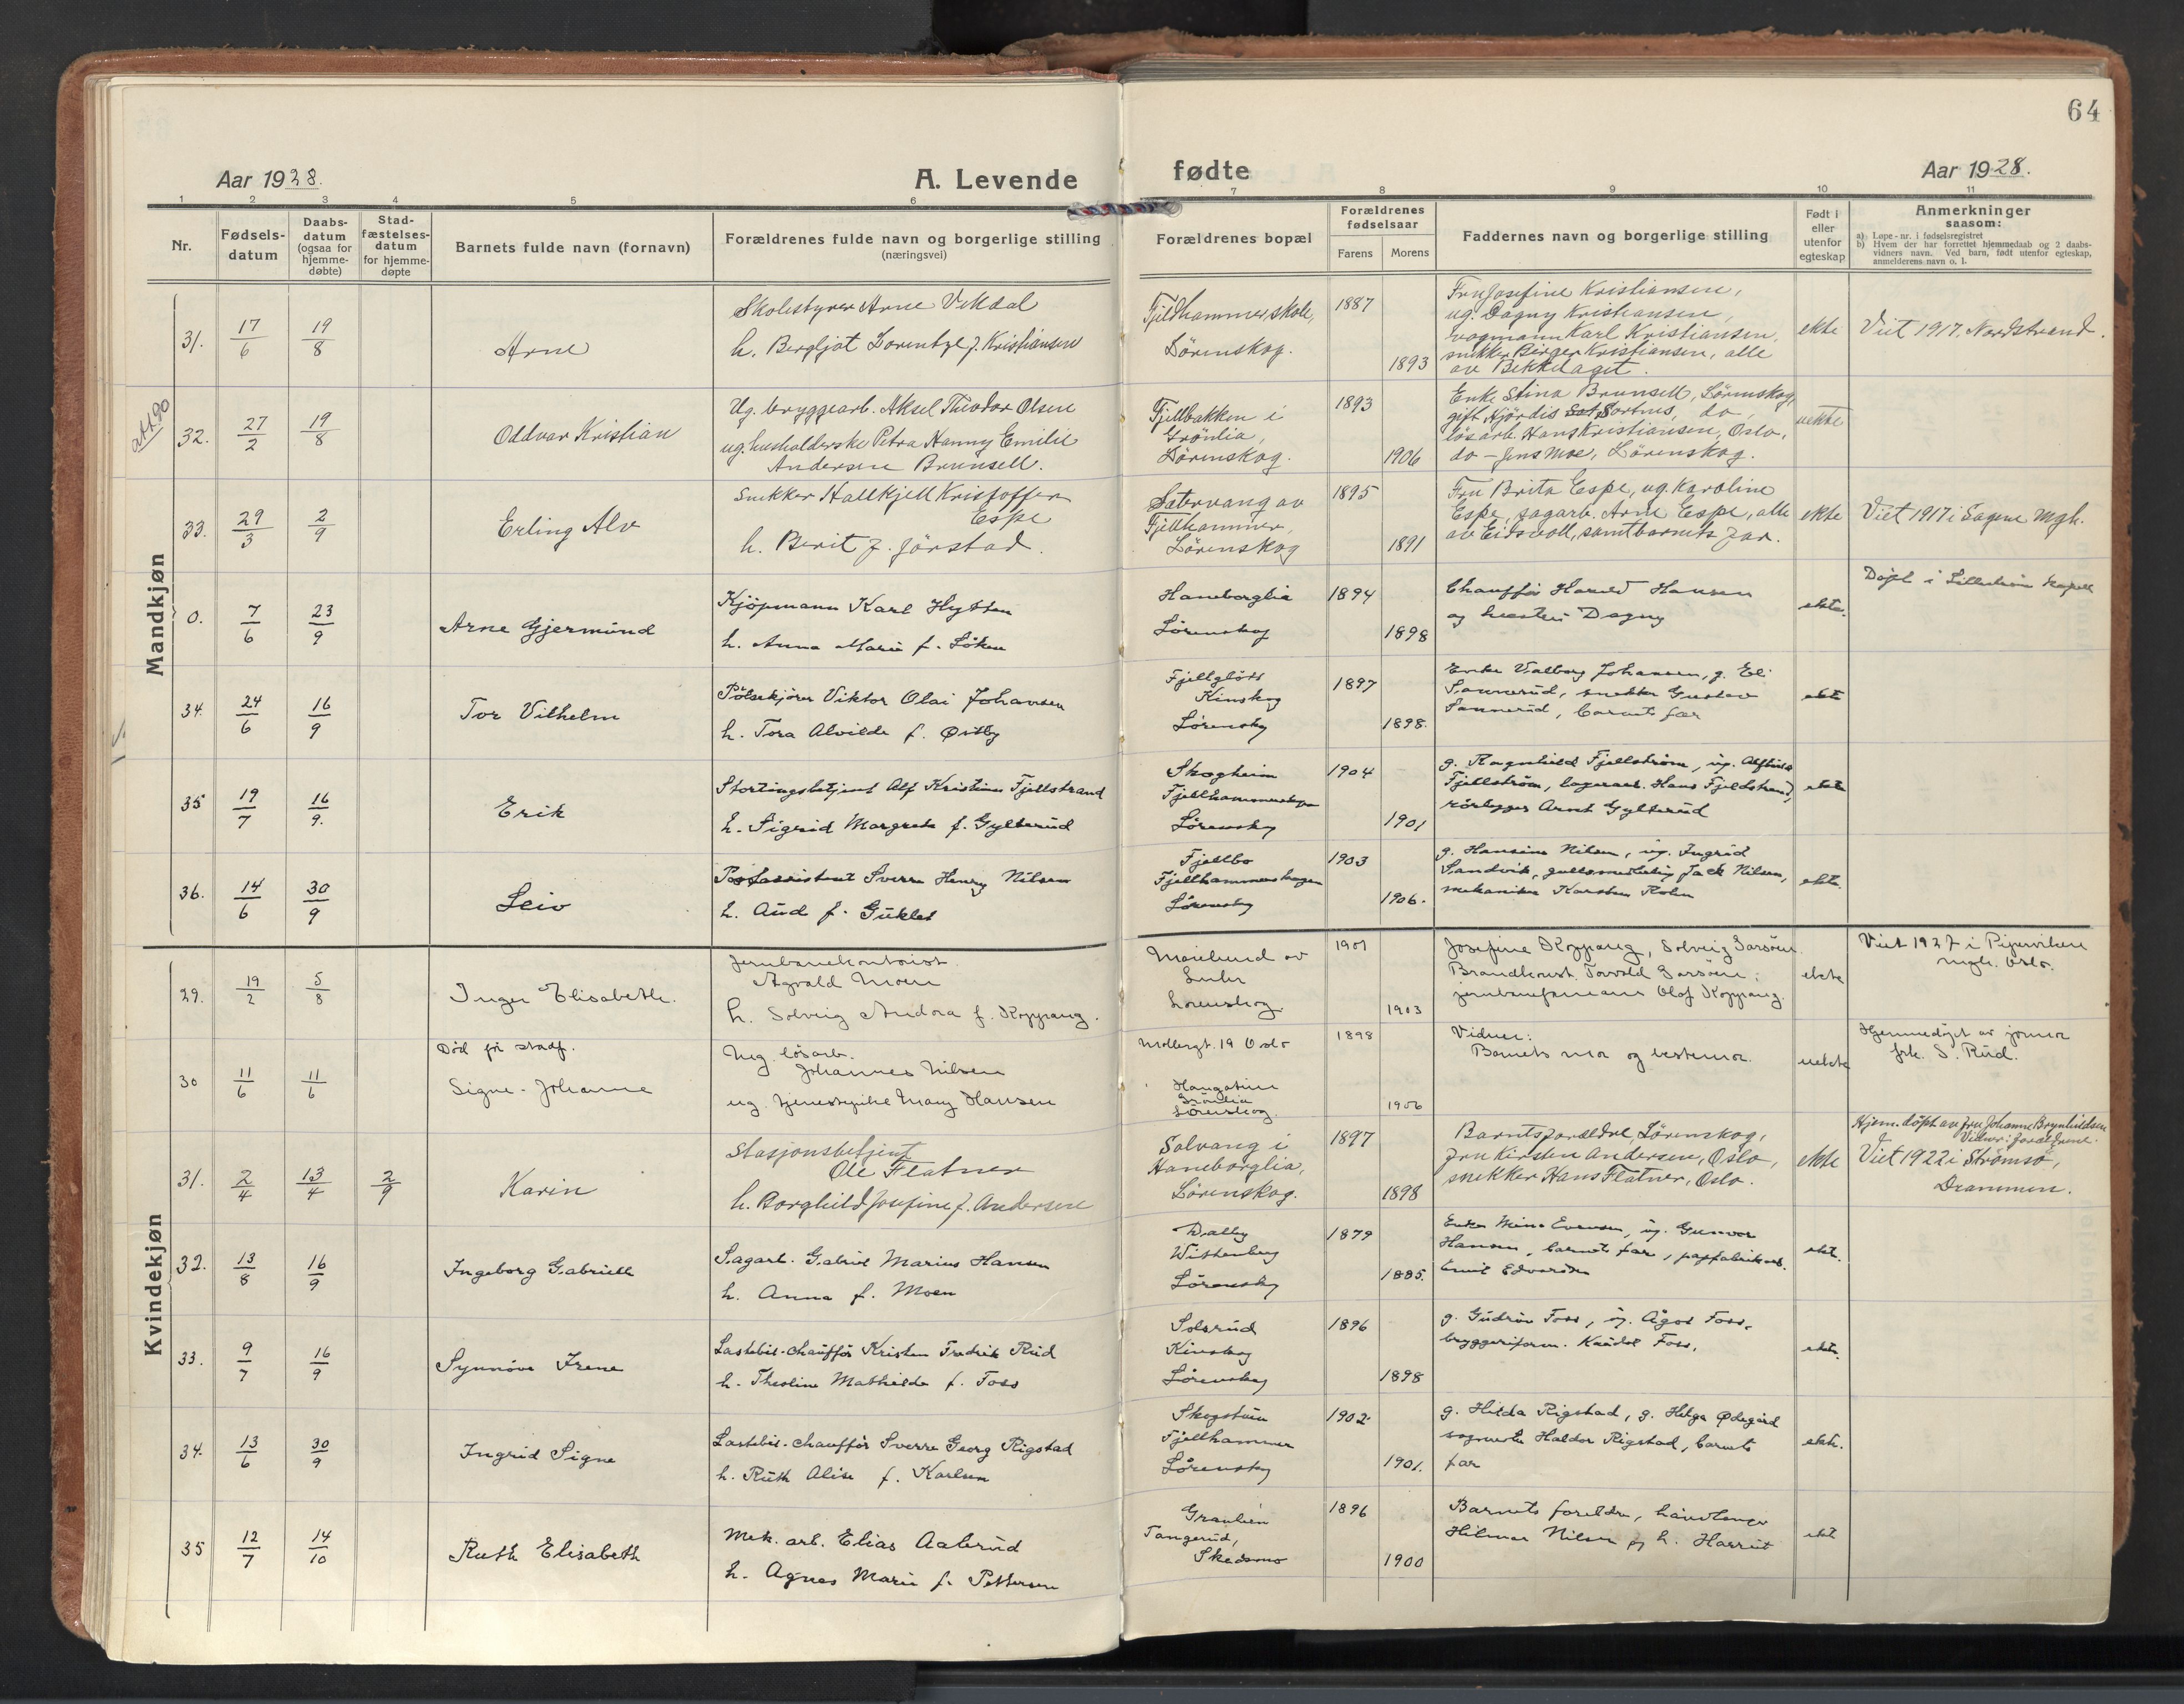 64
Aar 1928.
A. Levende fødte
Aar 1928.
1 2 3 4 5 6 7 8 9 10 11
Nr.
Fødselsdatum
Daabsdatum (ogsaa for hjemmedøbte)
Stadfæstelsesdatum for hjemmedøpte
Barnets fulde navn (fornavn)
Forældrenes fulde navn og borgerlige stilling (næringsvei)
Forældrenes bopæl
Forældrenes fødselsaar
Farens Morens
Faddernes navn og borgerlige stilling
Født i eller utenfor egteskap
Anmerkninger saasom:
a) Løpe-nr. i fødselsregistret
b) Hvem der har forrettet hjemmedaab og 2 daabsvidners navn. Ved barn, født utenfor egteskap, anmelderens navn o. l.
Mandkjøn
31. 17/6 19/8
Arne
Skolestyrer Arne Vikdal
h. Bergljot Lorentze f. Kristiansen
Fjeldhammer skole,
Lörenskog.
1887
1893
Fru Josefine Kristiansen,
ug. Dagny Kristiansen,
vognmann Karl Kristiansen,
snikker Birger Kristiansen, alle
av Bekkelaget.
ekte
Viet 1917. Nordstrand.
att 90
32. 27/2 19/8
Oddvar Kristian
Ug. bryggearb. Aksel Theodor Olsen
ug. husholderske Petra Hanny Emilie
Andersen Brunsell.
Fjellbakken i
Grönlia,
Lörenskog.
1893
1906
Enke Stina Brunsell, Lörenskog,
gift Hjördis Sortnes, do,
lösarb. Hans Kristiansen, Oslo,
do - Jens Moe, Lörenskog.
uekte
33. 29/3 2/9
Erling Alv
Snekker Hallkjell Kristoffer
Espe
h. Berit f. Jörstad.
Sætervang av
Fjellhammer,
Lörenskog
1895
1891
Fru Brita Espe, ug. Karoline
Espe, sagarb. Arne Espe, alle
av Eidsvoll, samt barnets far.
ekte
Viet 1917 i Sagene Mgh.
0. 7/6 23/9
Arne Gjermund
Kjöpmann Karl Hytten
h. Anna Marie f. Löken
Haneborglia
Lörenskog
1894
1898
Chaufför Harald Hansen
og hustru Dagny
ekte.
Döpt i Lilleström kapell
34. 24/6 16/9
Tor Vilhelm
Pölsekjører Viktor Olai Johansen
h. Tora Alvilde f. Østby
Fjellglött
Kinskog
Lörenskog
1897
1898.
Enke Valborg Johansen, g. Eli
Sannerud, snekker Gustav
Sannerud, barnets far
ekte
35 19/7 16/9.
Erik
Stortingsbetjent Alf Kristian Fjellstrand
h. Sigrid Margrete f. Gylterud
Skogheim
Fjellhammerskogen
Lörenskog
1904
1901
g. Ragnhild Fjellström, ug. Alfhild
Fjellström, lagerarb. Hans Fjeldstrand,
rörlegger Arnt Gylterud
ekte
36. 14/6 30/9
Leiv
Postassistent Sverre Henry Nilsen
h. Aud f. Guklet
Fjellbo
Fjellhammerskogen
Lörenskog
1903
1906.
g. Hansine Nilsen, ug. Ingrid
Sandvik, gullsmedlærling Jack Nilsen,
mekaniker Karsten Holm
ekte.
Kvindekjøn
29. 19/2 5/8
Inger Elisabeth.
Jernbanekontorist
Agvald Moen
h. Solveig Andora f. Koppang.
Moelund av
Lorenskog
1901
1903
Josefine Koppang, Solveig Sarsöen
Brandkonst. Torvald Sarsöen;
Olaf Koppang.
ekte
Viet 1927 i Pipervikens
mgh. Oslo.
30 11/6 11/6
Död för stadf.
Signe-Johanne
Ug. lösarb.
Johannes Nilsen
ug. tjenestepike Mary Hansen
Mollergt. 19 Oslo
Haugatun
Grönlia
Lörenskog.
1898
1906
Vidner:
Barnets mor og bestemor.
uekte
Hjemmedöpt av jormor
frk. S. Rud.
31. 2/4 13/4 2/9
Karin
Stasjonsbetjent
Ole Flatner
h. Borghild Josefine f. Andersen
Solvang i
Haneborglia,
Lörenskog.
1897
1898
Barnets forældre, Lörenskog,
fru Kirsten Andersen, Oslo,
snekker Hans Flatner, Oslo.
ekte
Hjem. döpt av fru Johanne Brynhildsen
Vidner: forældrene.
Viet 1922 i Strömsö,
Drammen.
32. 13/8 16/9
Ingeborg Gabrielle
Sagarb. Gabriel Marius Hansen
h. Anna f. Moen
Dalby
Wittenberg
Lörenskog
1879
1885.
Enke Mina Evensen, ug. Gunvor
Hansen, barnets far, papfabrikarb.
Emil Edvardsen
ekt.
33. 9/7 16/9
Synnöve Irene
Lastebil-chaufför Kristen Fredrik Rud
h. Theoline Mathilde f. Foss
Solsrud
Kinskog
Lörenskog
1896
1898
g. Gudrun Foss, ug. Ågot Foss,
bryggeriform. Kaudol Foss.
ekte.
34. 13/6 30/9
Ingrid Signe
Lastebil-chaufför Sverre Georg Rigstad
h. Ruth Alise f. Karlsen
Skogstuen
Fjellhammer
Lörenskog
1902
1901.
g. Hilda Rigstad, g. Helga Ødegård
Haldor Rigstad, barnets
far
ekte.
35 12/7 14/10
Ruth Elisabeth
Mek. arb. Elias Aabrud
h. Agnes Marie f. Pettersen
Granlien
Tangerud,
Skedsmo
1896
1900
Barnets foreldre, håndlanger
Hilmar Nilsen og h. Harriet
ekt